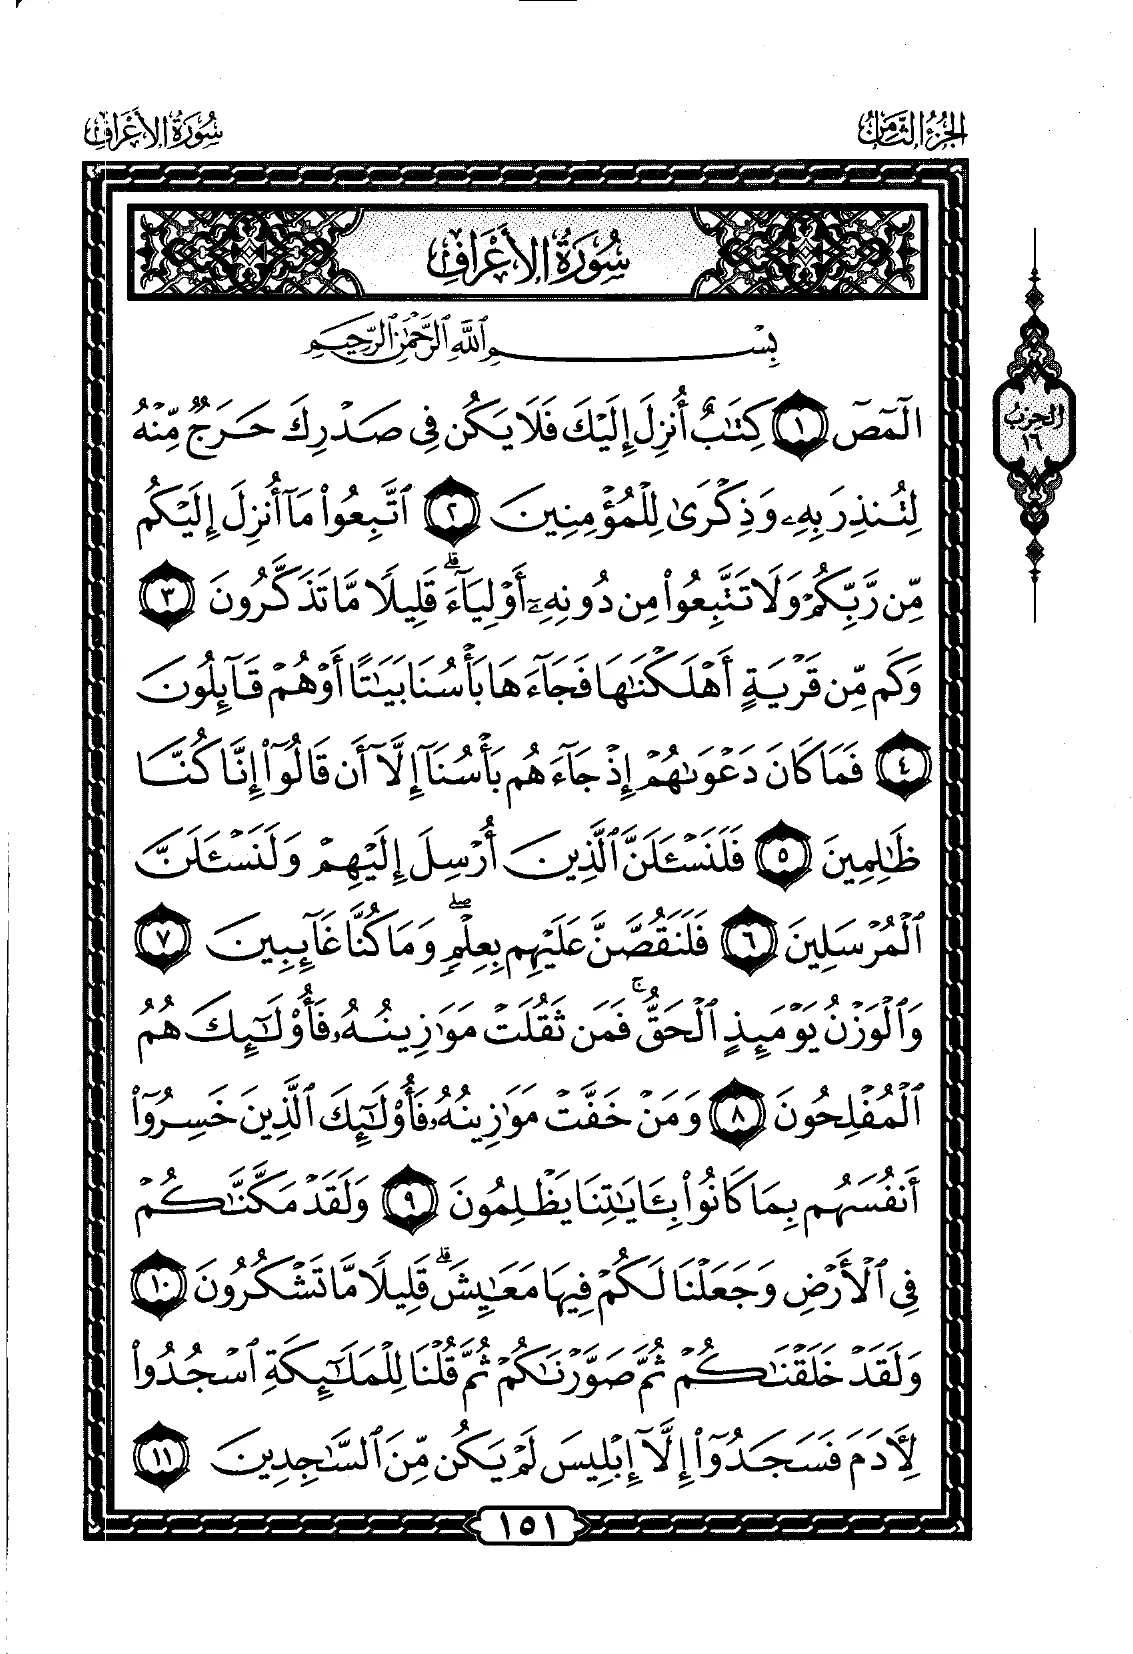 الجزء الثامن
سورة الأعراف
سُورَةُ الأَعْرَافِ
بِسْمِ ٱللَّهِ ٱلرَّحْمَٰنِ ٱلرَّحِيمِ
الٓمٓصٓ ١ كِتَٰبٌ أُنزِلَ إِلَيْكَ فَلَا يَكُن فِي صَدْرِكَ حَرَجٌ مِّنْهُ
لِتُنذِرَ بِهِۦ وَذِكْرَىٰ لِلْمُؤْمِنِينَ ٢ ٱتَّبِعُوا۟ مَآ أُنزِلَ إِلَيْكُم
مِّن رَّبِّكُمْ وَلَا تَتَّبِعُوا۟ مِن دُونِهِۦٓ أَوْلِيَآءَ ۗ قَلِيلًا مَّا تَذَكَّرُونَ ٣
وَكَم مِّن قَرْيَةٍ أَهْلَكْنَٰهَا فَجَآءَهَا بَأْسُنَا بَيَٰتًا أَوْ هُمْ قَآئِلُونَ
٤ فَمَا كَانَ دَعْوَىٰهُمْ إِذْ جَآءَهُم بَأْسُنَآ إِلَّآ أَن قَالُوٓا۟ إِنَّا كُنَّا
ظَٰلِمِينَ ٥ فَلَنَسْـَٔلَنَّ ٱلَّذِينَ أُرْسِلَ إِلَيْهِمْ وَلَنَسْـَٔلَنَّ
ٱلْمُرْسَلِينَ ٦ فَلَنَقُصَّنَّ عَلَيْهِم بِعِلْمٍ ۖ وَمَا كُنَّا غَآئِبِينَ ٧
وَٱلْوَزْنُ يَوْمَئِذٍ ٱلْحَقُّ ۚ فَمَن ثَقُلَتْ مَوَٰزِينُهُۥ فَأُو۟لَٰٓئِكَ هُمُ
ٱلْمُفْلِحُونَ ٨ وَمَنْ خَفَّتْ مَوَٰزِينُهُۥ فَأُو۟لَٰٓئِكَ ٱلَّذِينَ خَسِرُوٓا۟
أَنفُسَهُم بِمَا كَانُوا۟ بِـَٔايَٰتِنَا يَظْلِمُونَ ٩ وَلَقَدْ مَكَّنَّٰكُمْ
فِي ٱلْأَرْضِ وَجَعَلْنَا لَكُمْ فِيهَا مَعَٰيِشَ ۗ قَلِيلًا مَّا تَشْكُرُونَ ١٠
وَلَقَدْ خَلَقْنَٰكُمْ ثُمَّ صَوَّرْنَٰكُمْ ثُمَّ قُلْنَا لِلْمَلَٰٓئِكَةِ ٱسْجُدُوا۟
لِأَدَمَ فَسَجَدُوٓا۟ إِلَّآ إِبْلِيسَ لَمْ يَكُن مِّنَ ٱلسَّٰجِدِينَ ١١
الحزب
١٦
١٥١